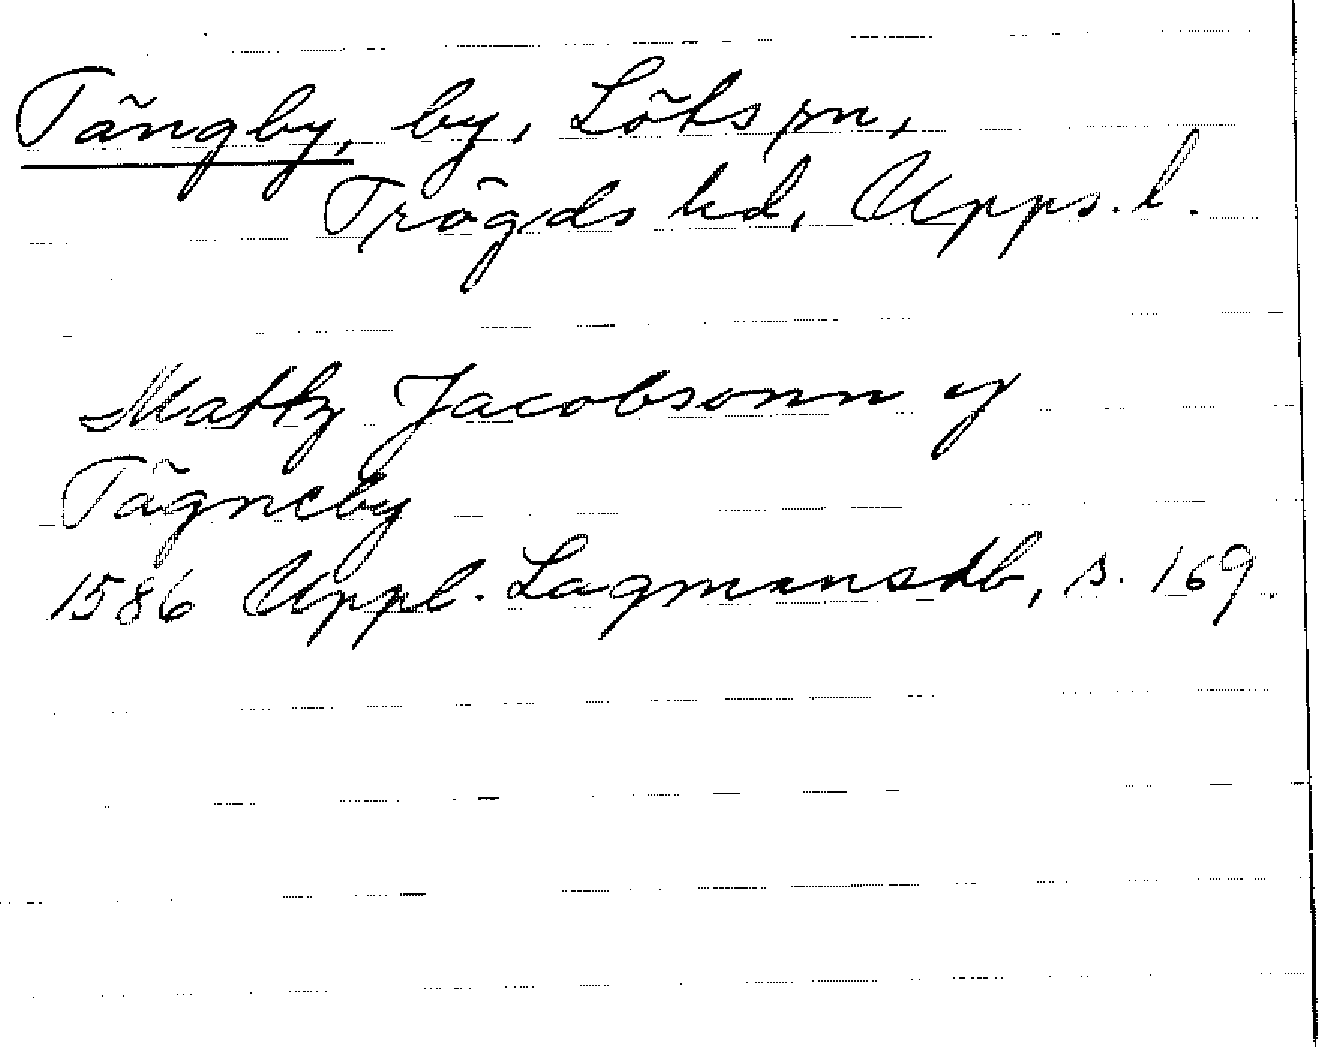 Tängby, by, Löts sn,
Trögds hd, Upps. l.
Mattz Jacobsonn y
Tägneby
1586 Uppl. Lagmansdb, s. 169.